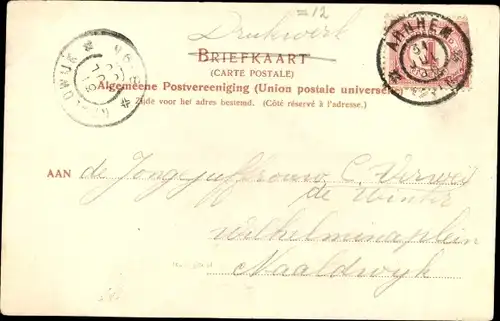 =12
Drukwerk
BRIEFKAART
(CARTE POSTALE)
Algemeene Postvereeniging (Union postale universelle)
Zijde voor het adres bestemd. (Côté réservé à l'adresse.)
ARNHEM
1
AAN de Jongejuffrouw C. Verweij
de Winter
Wilhelminaplein
Naaldwyk